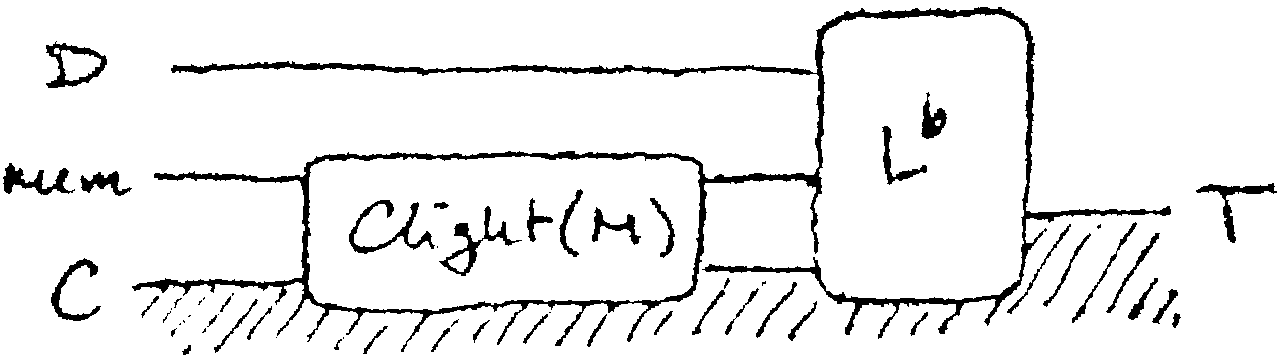 D
mem
C
Clight(M)
L^b
T